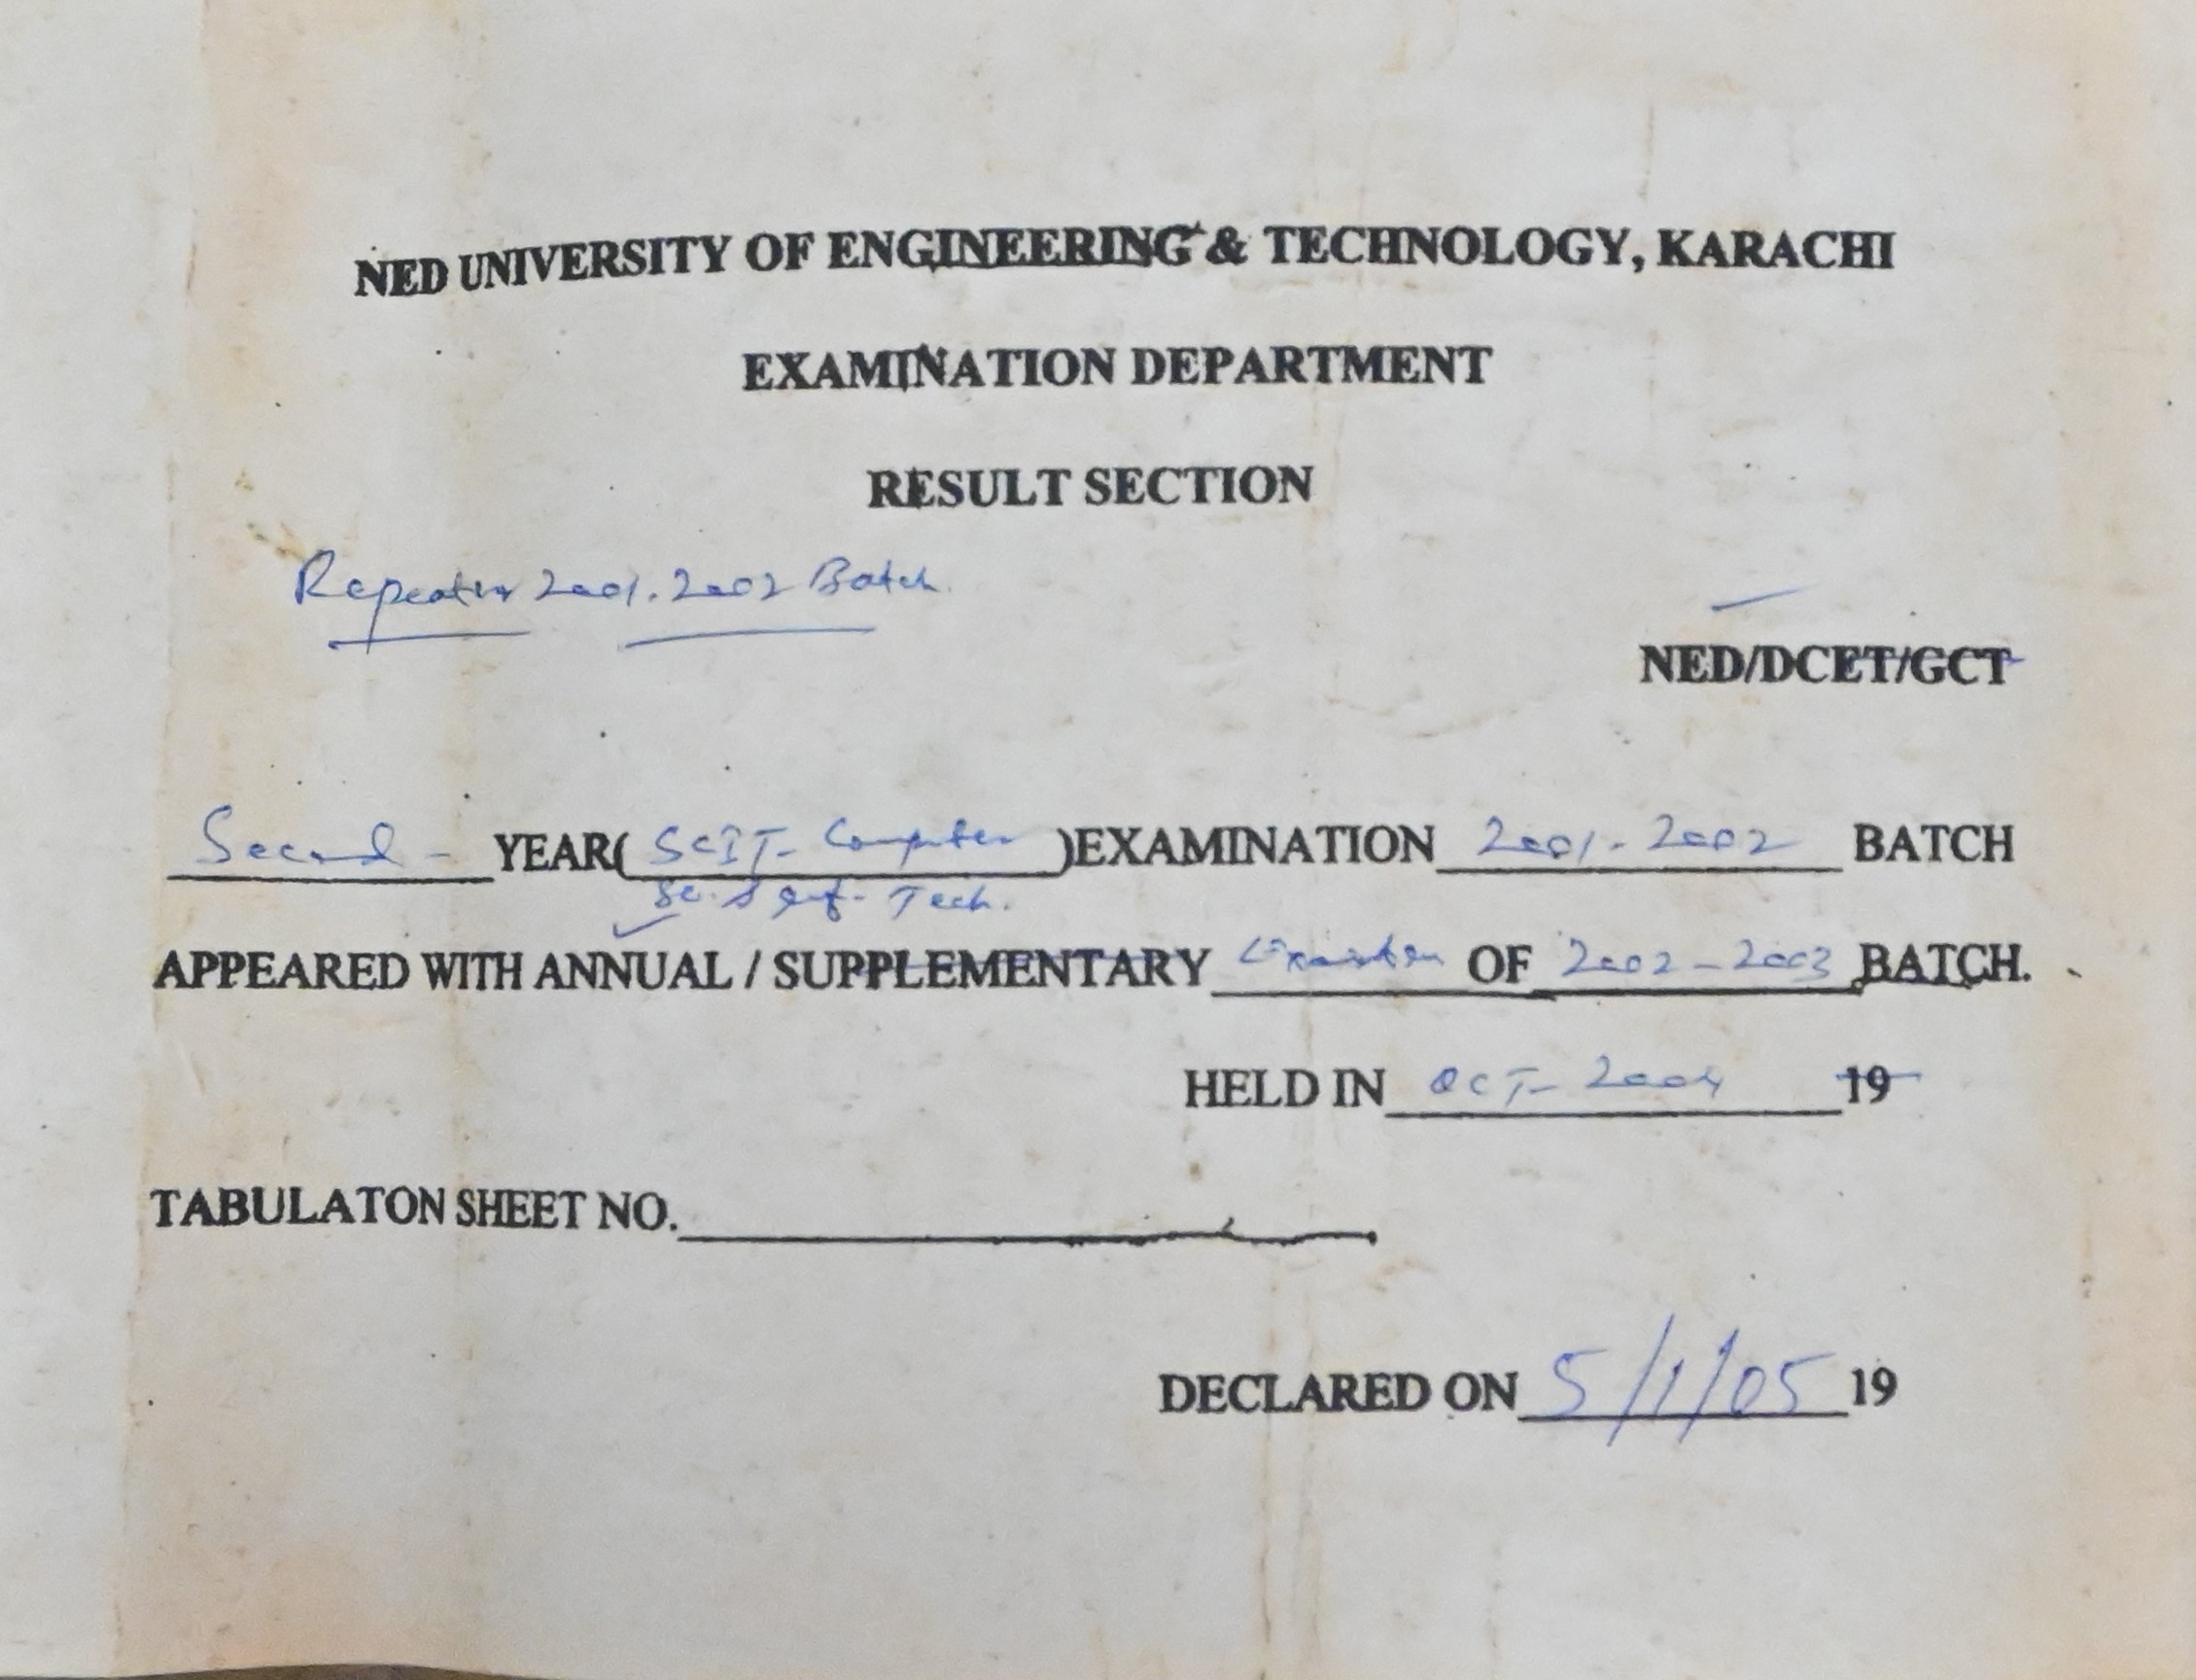 NED UNIVERSITY OF ENGINEERING & TECHNOLOGY, KARACHI
EXAMINATION DEPARTMENT
RESULT SECTION
Repeater 2001-2002 Batch
NED/DCET/GCT
Second - YEAR( SCIT- Computer )EXAMINATION 2001-2002 BATCH
Sc. & Inf. Tech.
APPEARED WITH ANNUAL / SUPPLEMENTARY OF 2002-2003 BATCH.
HELD IN OCT- 2004 19
TABULATON SHEET NO.
DECLARED ON 5/1/05 19